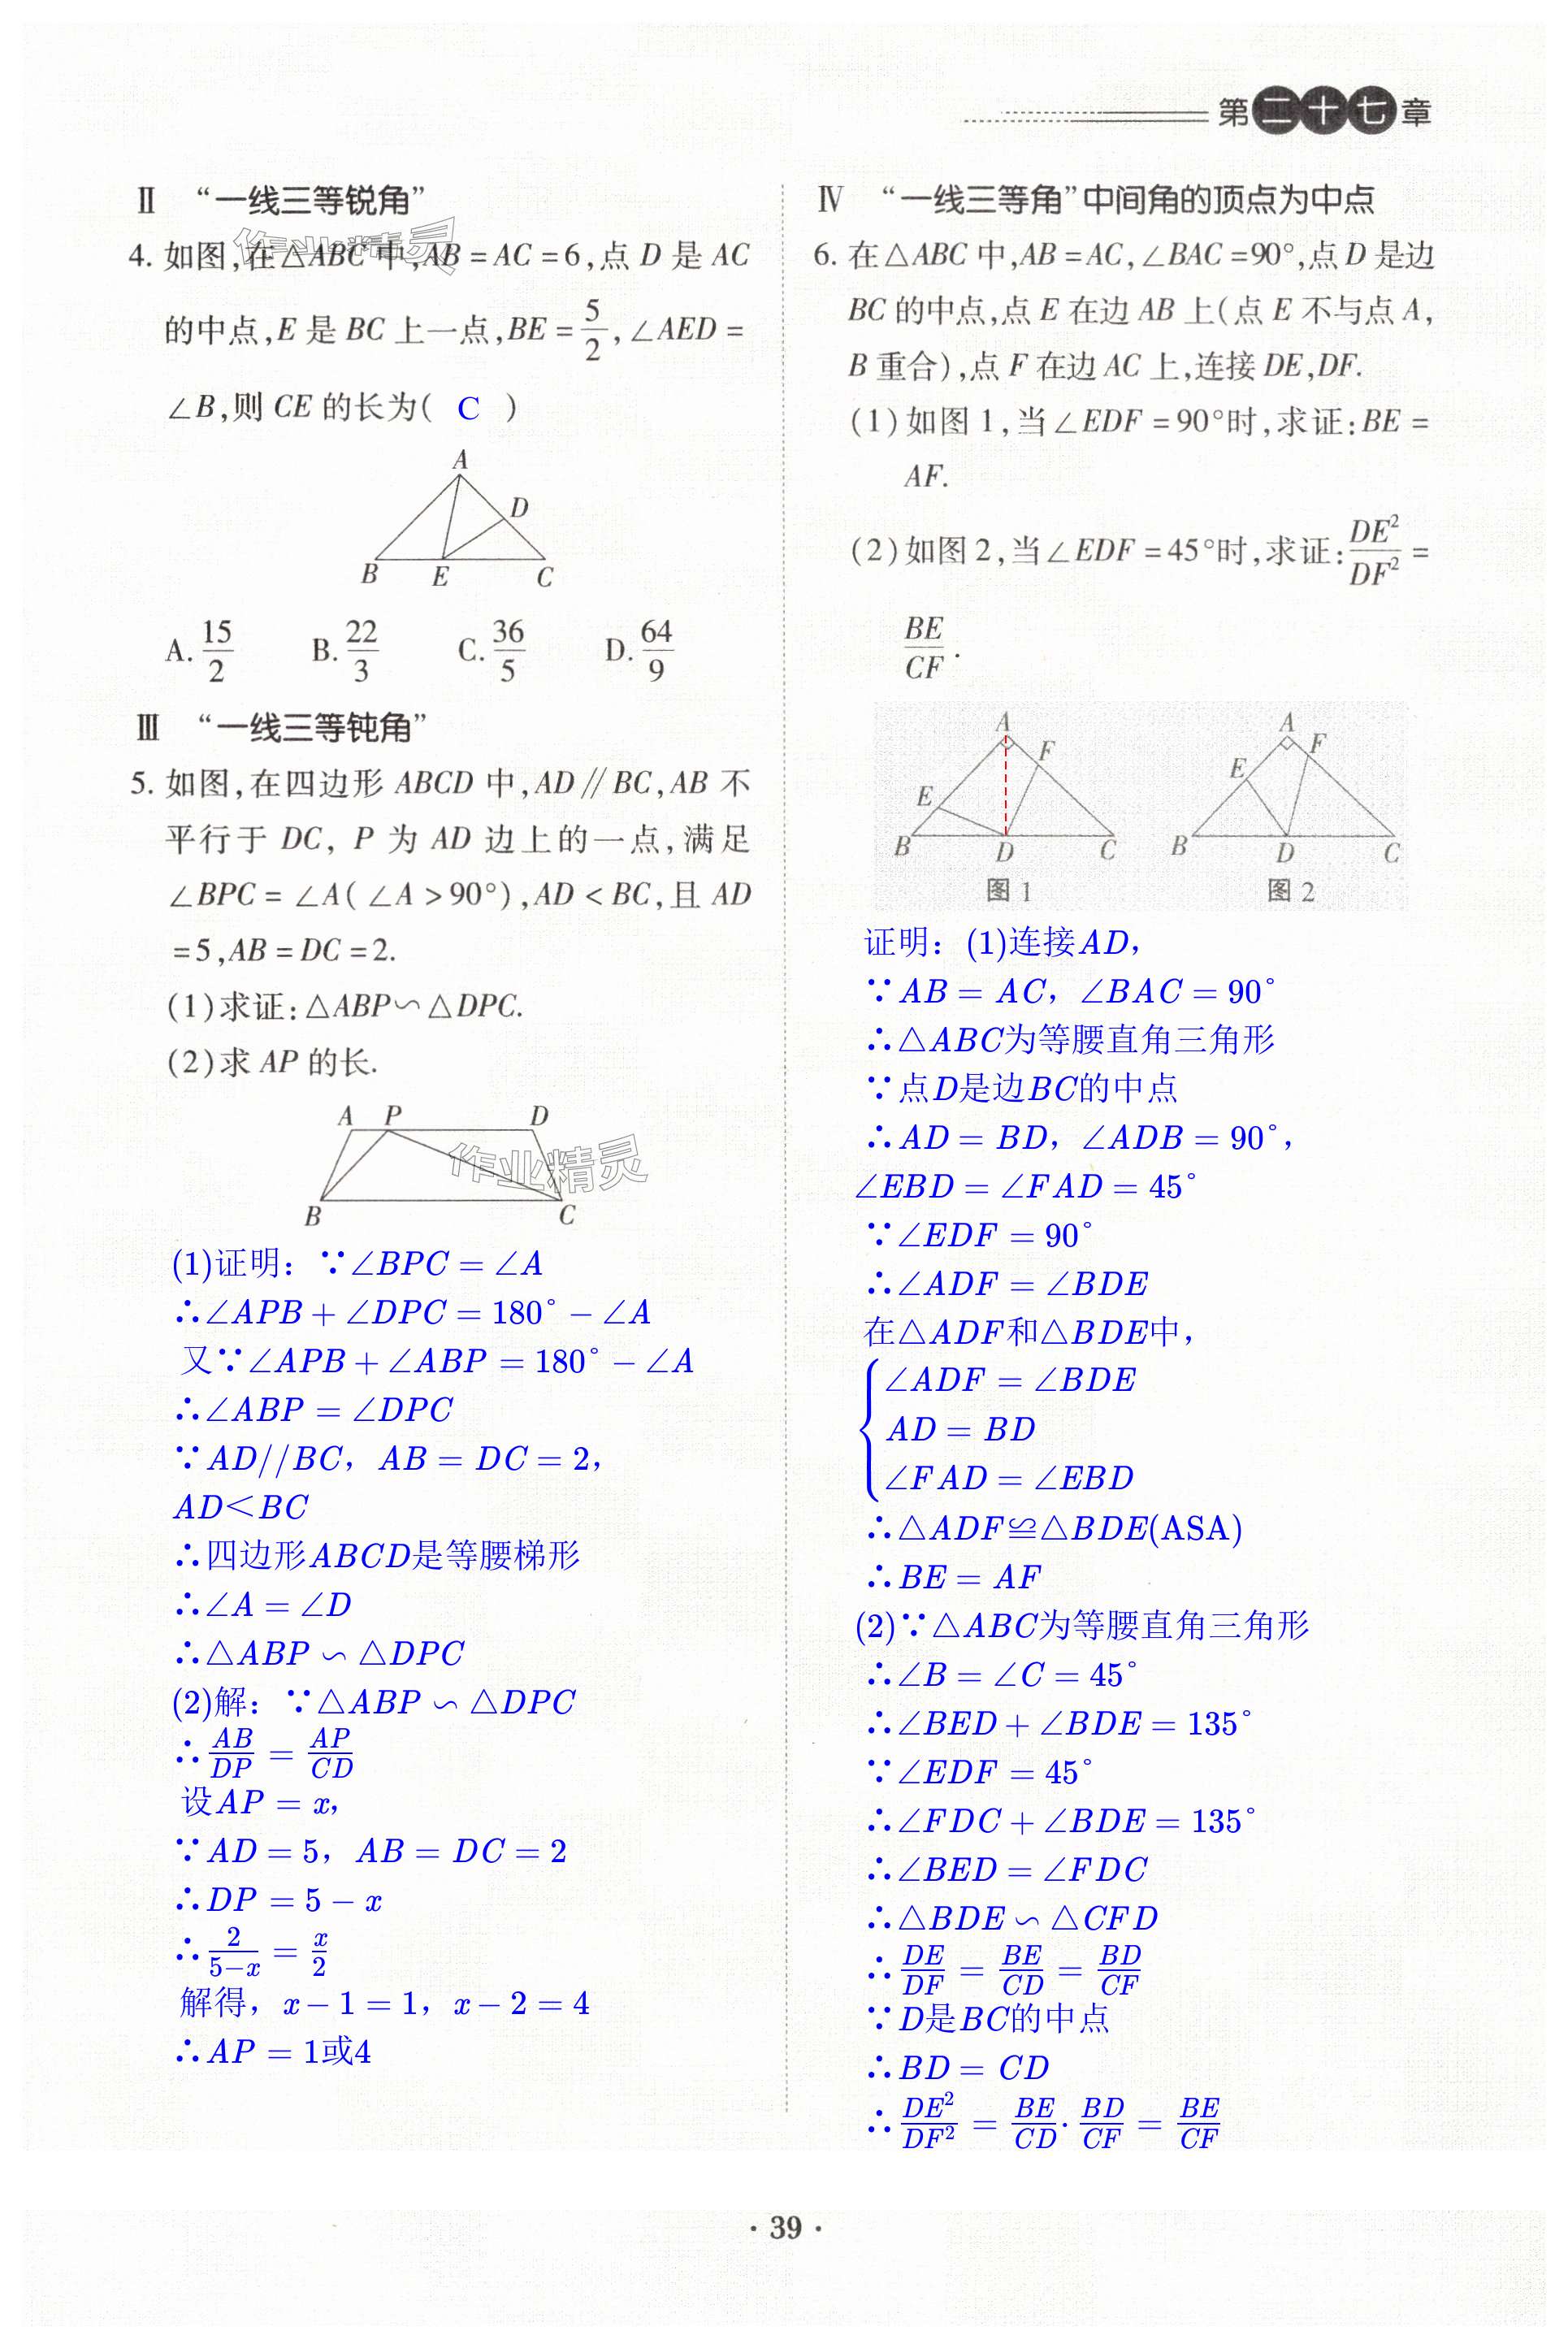 第二十七章
Ⅱ “一线三等锐角”
4. 如图,在△ABC 中,AB=AC=6,点 D 是 AC
的中点,E 是 BC 上一点,BE=5/2,∠AED=
∠B,则 CE 的长为( C )
A
D
B E C
A. 15/2 B. 22/3 C. 36/5 D. 64/9
Ⅲ “一线三等钝角”
5. 如图,在四边形 ABCD 中,AD∥BC,AB 不
平行于 DC, P 为 AD 边上的一点,满足
∠BPC=∠A(∠A>90°),AD<BC,且 AD
=5,AB=DC=2.
(1)求证:△ABP∽△DPC.
(2)求 AP 的长.
A P D
作业精灵
B C
(1)证明：∵∠BPC=∠A
∴∠APB+∠DPC=180°-∠A
又∵∠APB+∠ABP=180°-∠A
∴∠ABP=∠DPC
∵AD//BC，AB=DC=2，
AD<BC
∴四边形ABCD是等腰梯形
∴∠A=∠D
∴△ABP∽△DPC
(2)解：∵△ABP∽△DPC
∴AB/DP=AP/CD
设AP=x，
∵AD=5，AB=DC=2
∴DP=5-x
∴2/(5-x)=x/2
解得，x-1=1，x-2=4
∴AP=1或4
Ⅳ “一线三等角”中间角的顶点为中点
6. 在△ABC 中,AB=AC,∠BAC=90°,点 D 是边
BC 的中点,点 E 在边 AB 上(点 E 不与点 A,
B 重合),点 F 在边 AC 上,连接 DE,DF.
(1)如图 1,当∠EDF=90°时,求证:BE=
AF.
(2)如图 2,当∠EDF=45°时,求证:DE²/DF²=
BE/CF.
A F E B D C
图 1
A F E B D C
图 2
证明：(1)连接AD，
∵AB=AC，∠BAC=90°
∴△ABC为等腰直角三角形
∵点D是边BC的中点
∴AD=BD，∠ADB=90°，
∠EBD=∠FAD=45°
∵∠EDF=90°
∴∠ADF=∠BDE
在△ADF和△BDE中，
∠ADF=∠BDE
AD=BD
∠FAD=∠EBD
∴△ADF≌△BDE(ASA)
∴BE=AF
(2)∵△ABC为等腰直角三角形
∴∠B=∠C=45°
∴∠BED+∠BDE=135°
∵∠EDF=45°
∴∠FDC+∠BDE=135°
∴∠BED=∠FDC
∴△BDE∽△CFD
∴DE/DF=BE/CD=BD/CF
∵D是BC的中点
∴BD=CD
∴DE²/DF²=BE/CD·BD/CF=BE/CF
· 39 ·
作业精灵